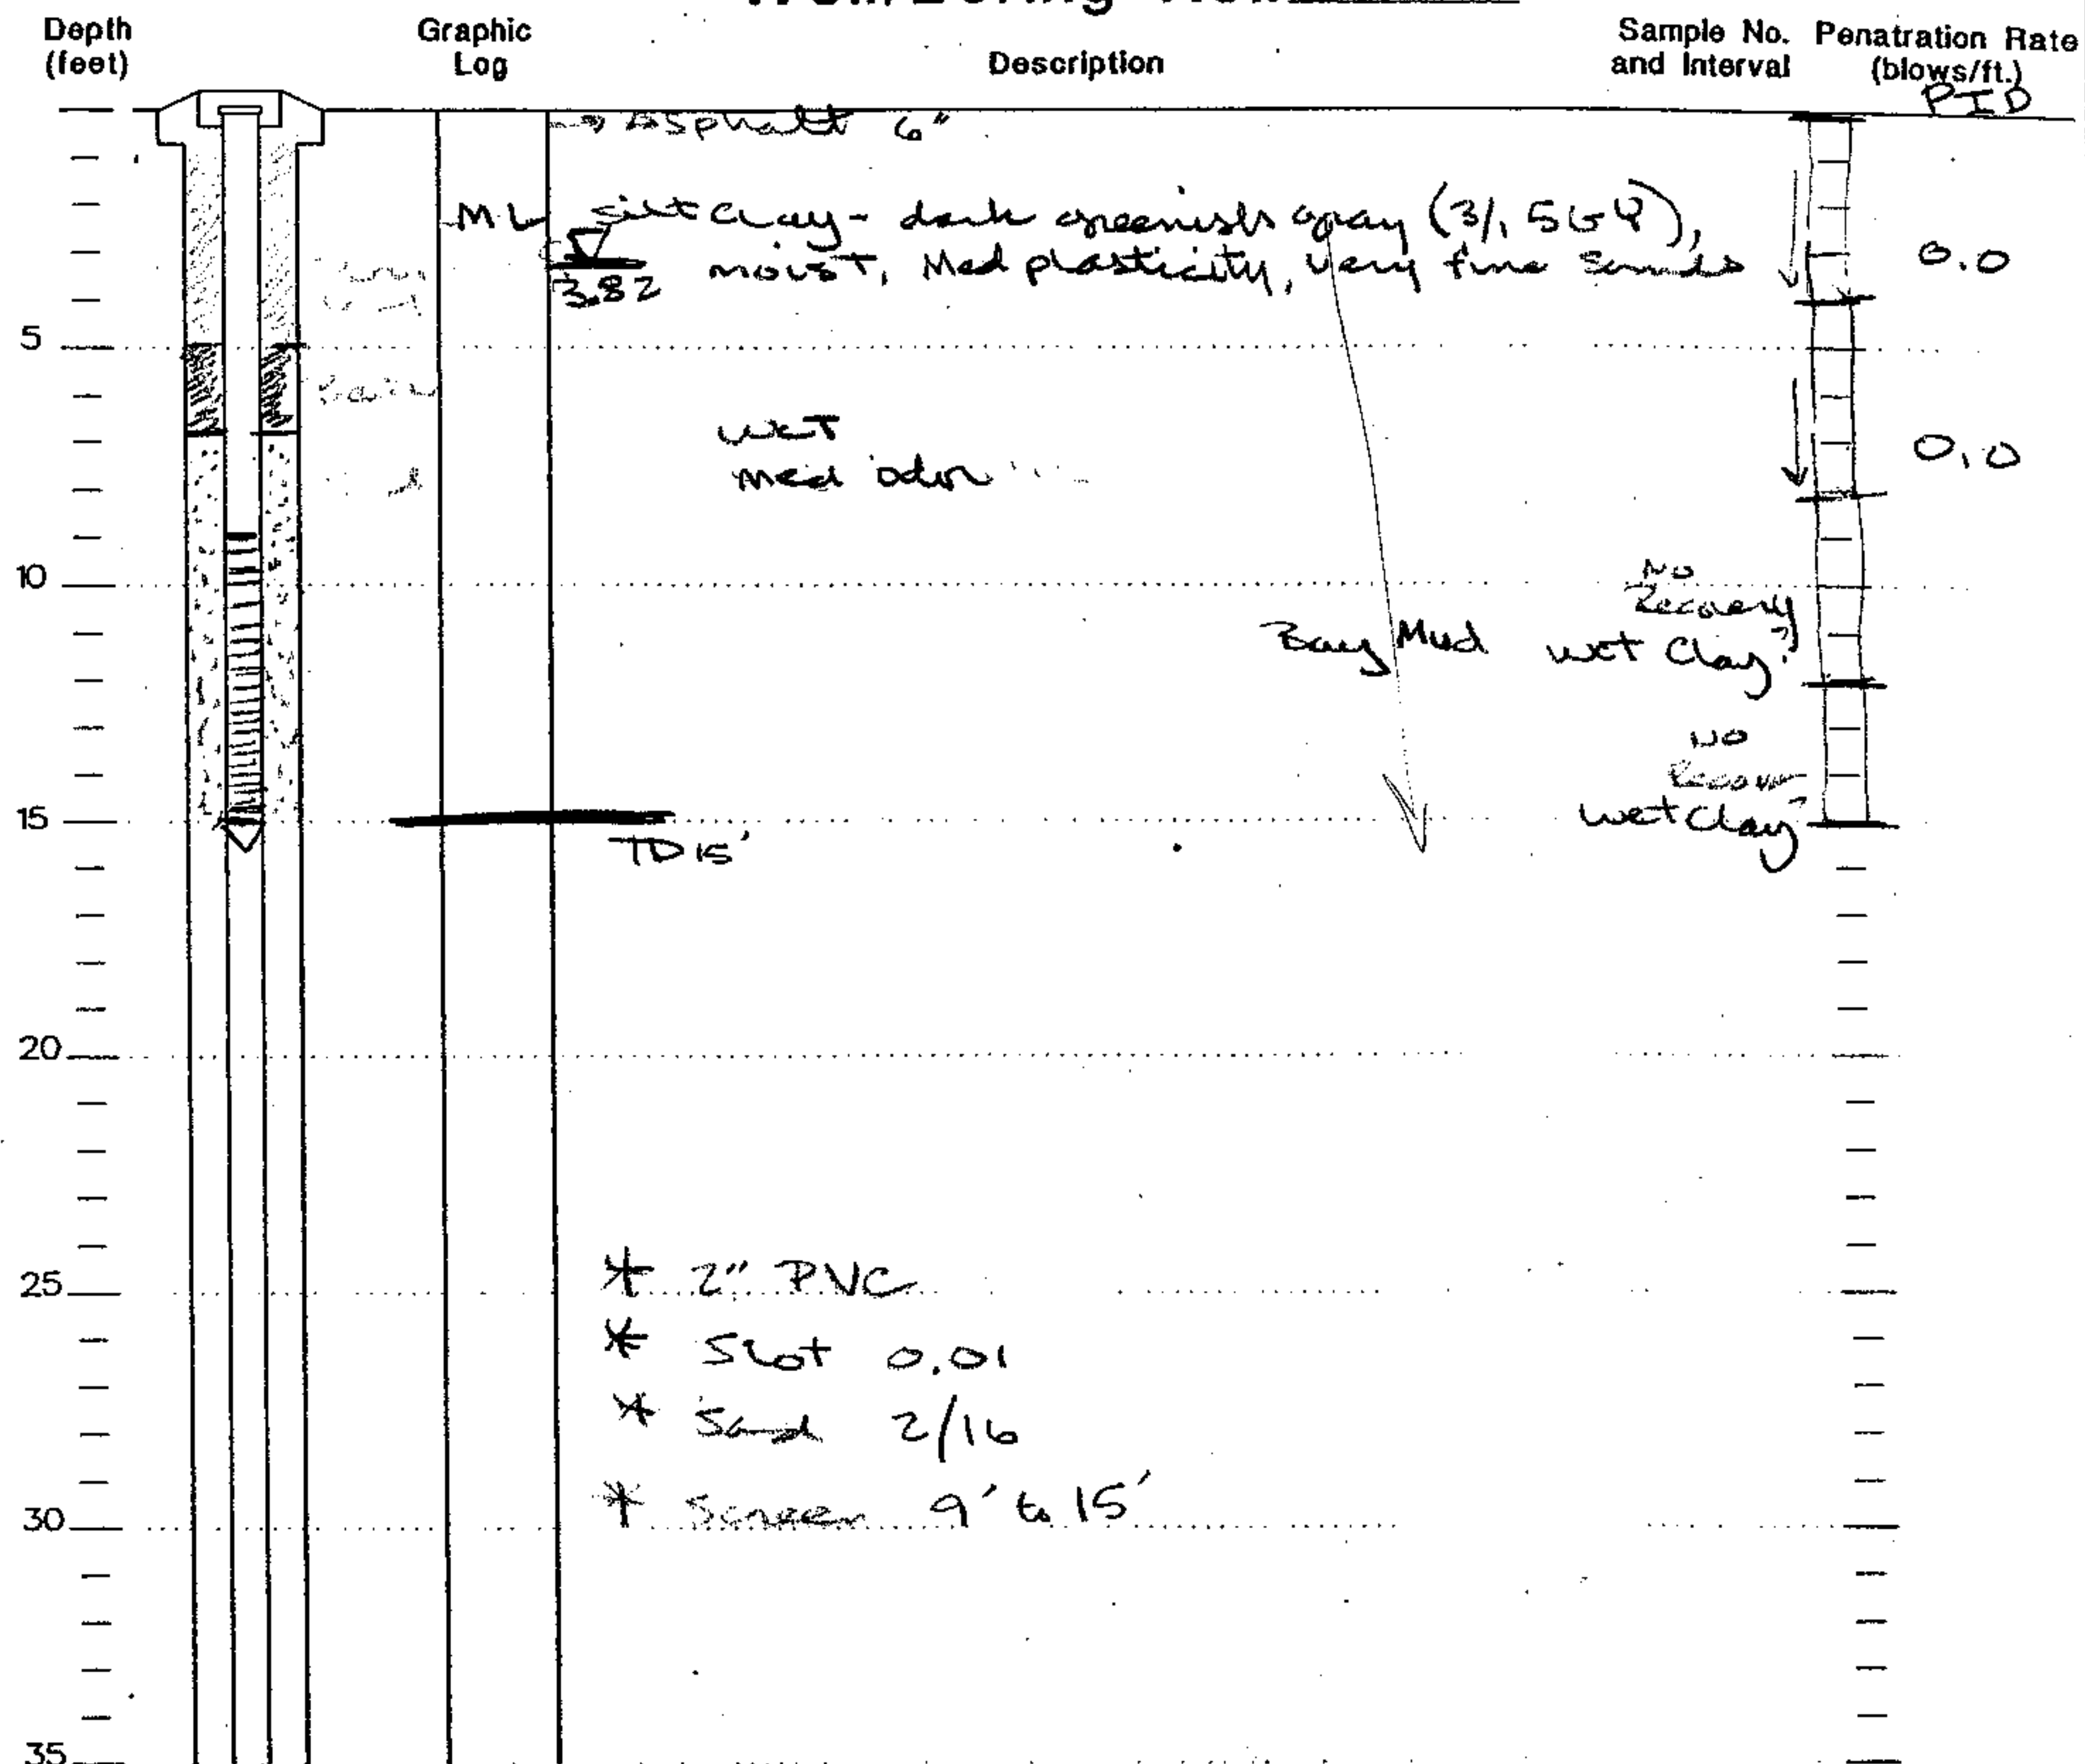 Depth
(feet)
Graphic
Log
Description
Sample No.
and Interval
Penatration Rate
(blows/ft.)
PID
→ Asphalt 6"
ML silt clay - dark greenish gray (3/, 5GY),
moist, Med plasticity, very fine sands
3.82
0.0
5
wet
med odor
0.0
10
No
Recovery
Bay Mud wet Clay?
No
Recover
wet Clay?
15
TD 15'
20
25
* 2" PVC
* Slot 0.01
* Sand 2/16
* Screen 9' to 15'
30
35